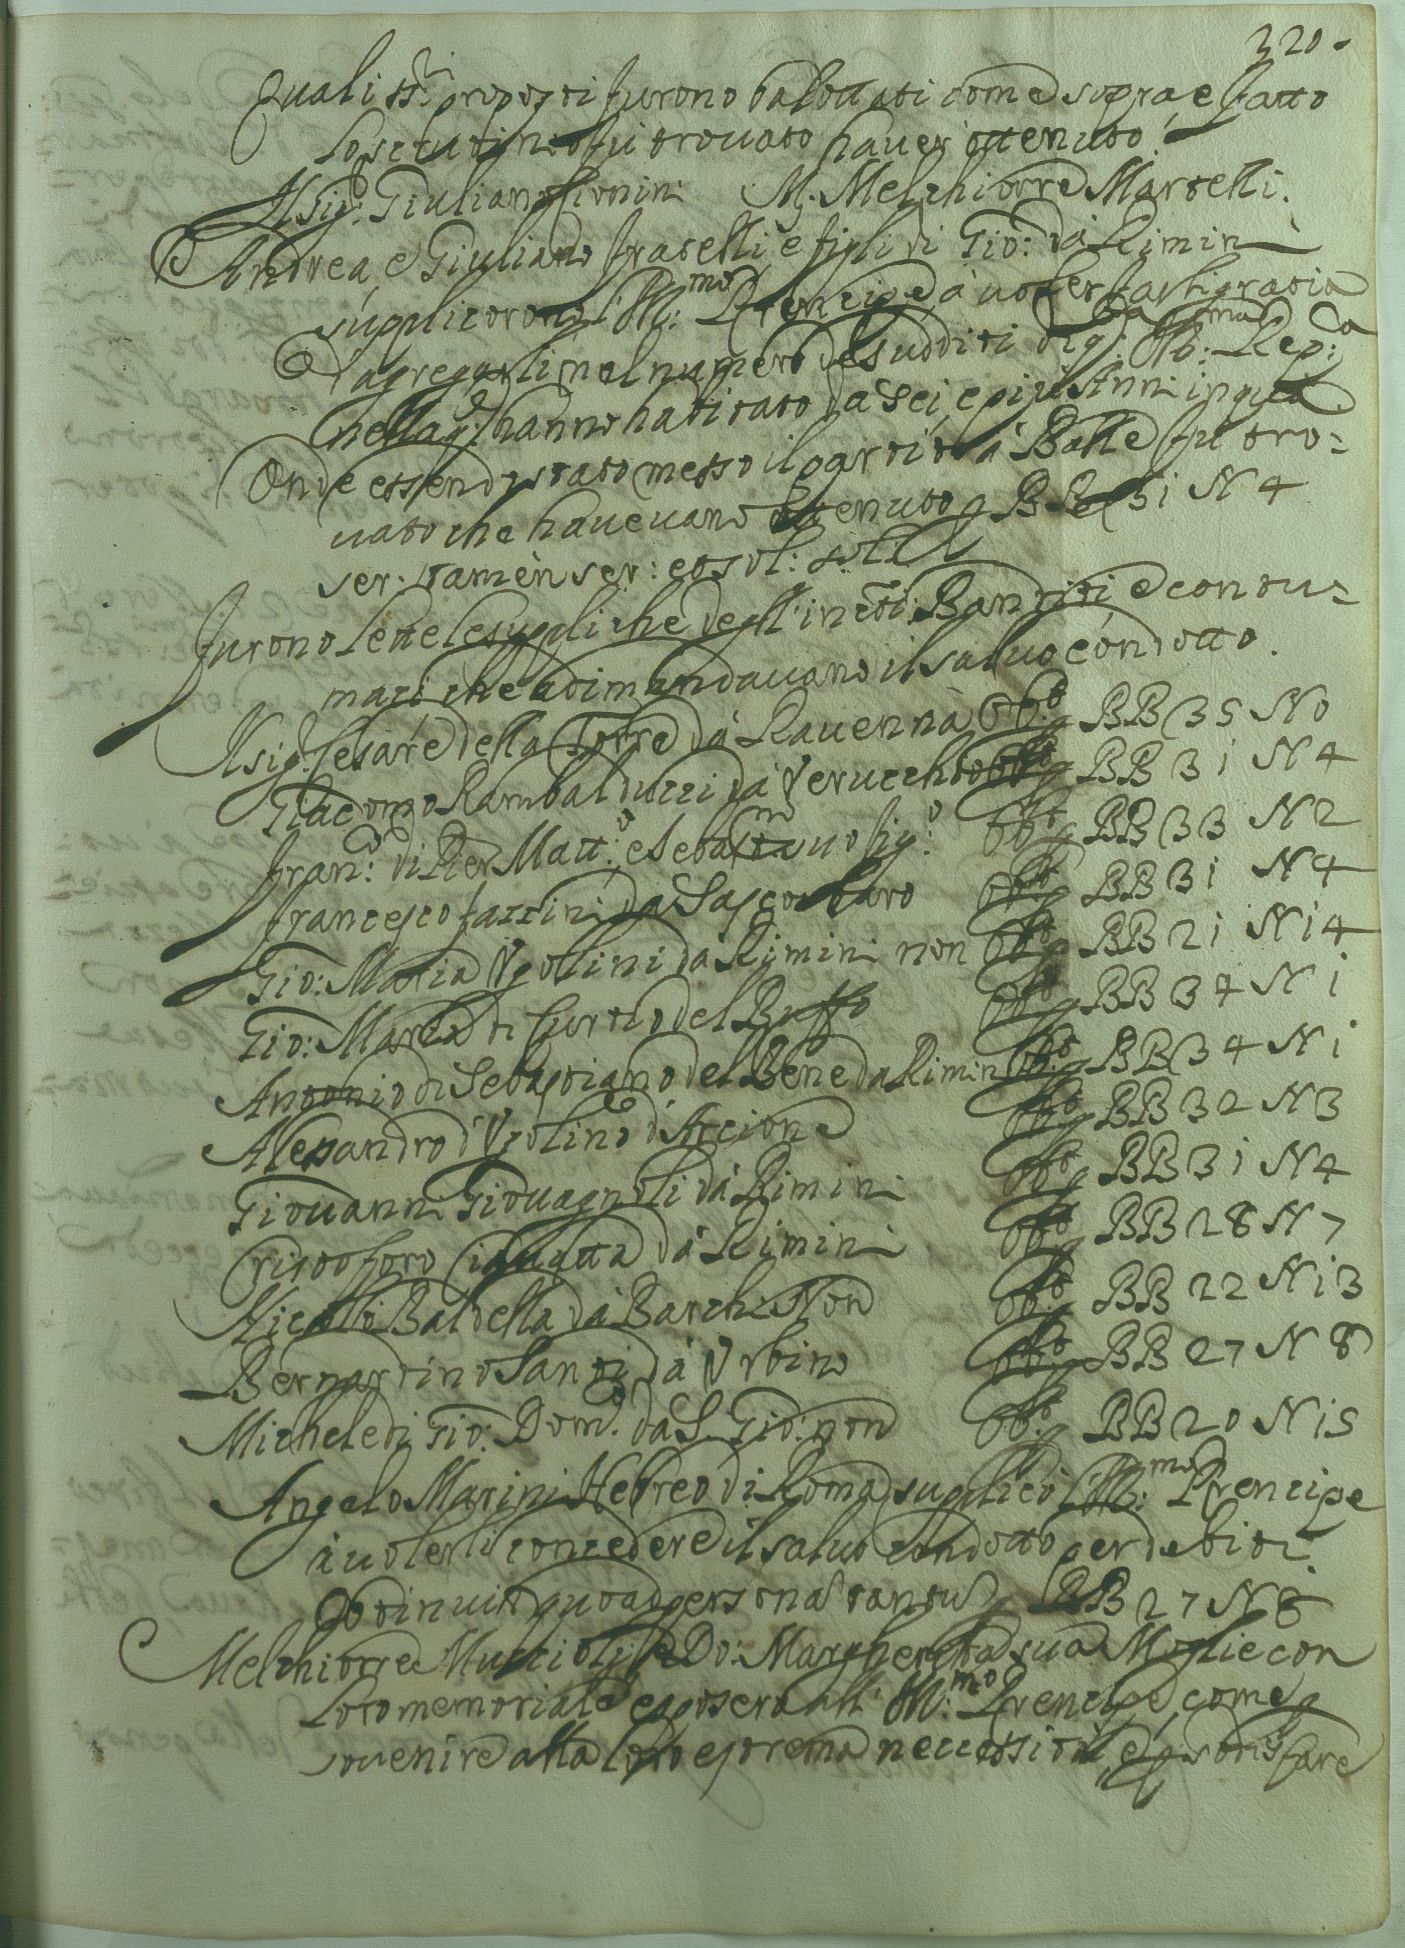 320.
Quali ss.ri proposti furono ballottati come sopra, e fatto
lo scrutinio fù trovato haver ottenuto.
Il Sig.r Giuliano M. Melchiorre Martelli.
Andrea, e Giuliano fratelli e figli di Gio: da Rimini
supplicorono l'Ill:mo Prencipe, à voler farli gratia
d'agregarli nel numero de sudditi di q.ta Ill:ma Rep:ca
nella q.le hanno habitato da sei, e più Anni in quà
Onde essendo stato messo il partito à Balle fù tro=
vato che havevano ottenuto p BB 31 N 4
ser: tamen ser: et sol: sol:
Furono lette le suppliche degl'infr̄ti Banditi e contu=
maci che adimandavano il salvo condotto.
Il sig.r Cesare della Torre da Ravenna Ob.t p BB 35 N 0
Giacomo Rambalducci da Verucchio Ob.t p BB 31 N 4
Fran.co di Pier Matt.o, e Sebast.no suo fig.o Ob.t p BB 33 N 2
Francesco fazzini da Sascorbaro Ob.t p BB 31 N 4
Gio: Maria Ugollini da Rimini non Ob.t p BB 21 N 14
Gio: Maria di Curtio del Buffo Ob.t p BB 34 N 1
Antonio di Sebastiano del Bene da Rimini Ob.t p BB 34 N 1
Alesandro d'Ugolino d' Ob.t p BB 32 N 3
Giovanni Giovagnoli da Rimini Ob.t p BB 31 N 4
Cristoforo da Rimini Ob.t p BB 28 N 7
Nicolò Baldella da Barchi Non Ob.t p BB 22 N 13
Bernardino Santi da Urbino Ob.t p BB 27 N 8
Michele di Gio: Dom.co da S. Gio: non Ob.t p BB 20 N 15
Angelo Marini Hebreo di Roma supplicò l'Ill:mo Prencipe
à volerli concedere il salvo condotto per debiti.
Obtinuit quoad personas tantus p BB 27 N 8
Melchiorre Muccioli, e Do: Margherita sua Moglie con
loro memoriale esposero all' Ill:mo Prencipe, come p
sovenire alla loro estrema necessità, e p sodisfare